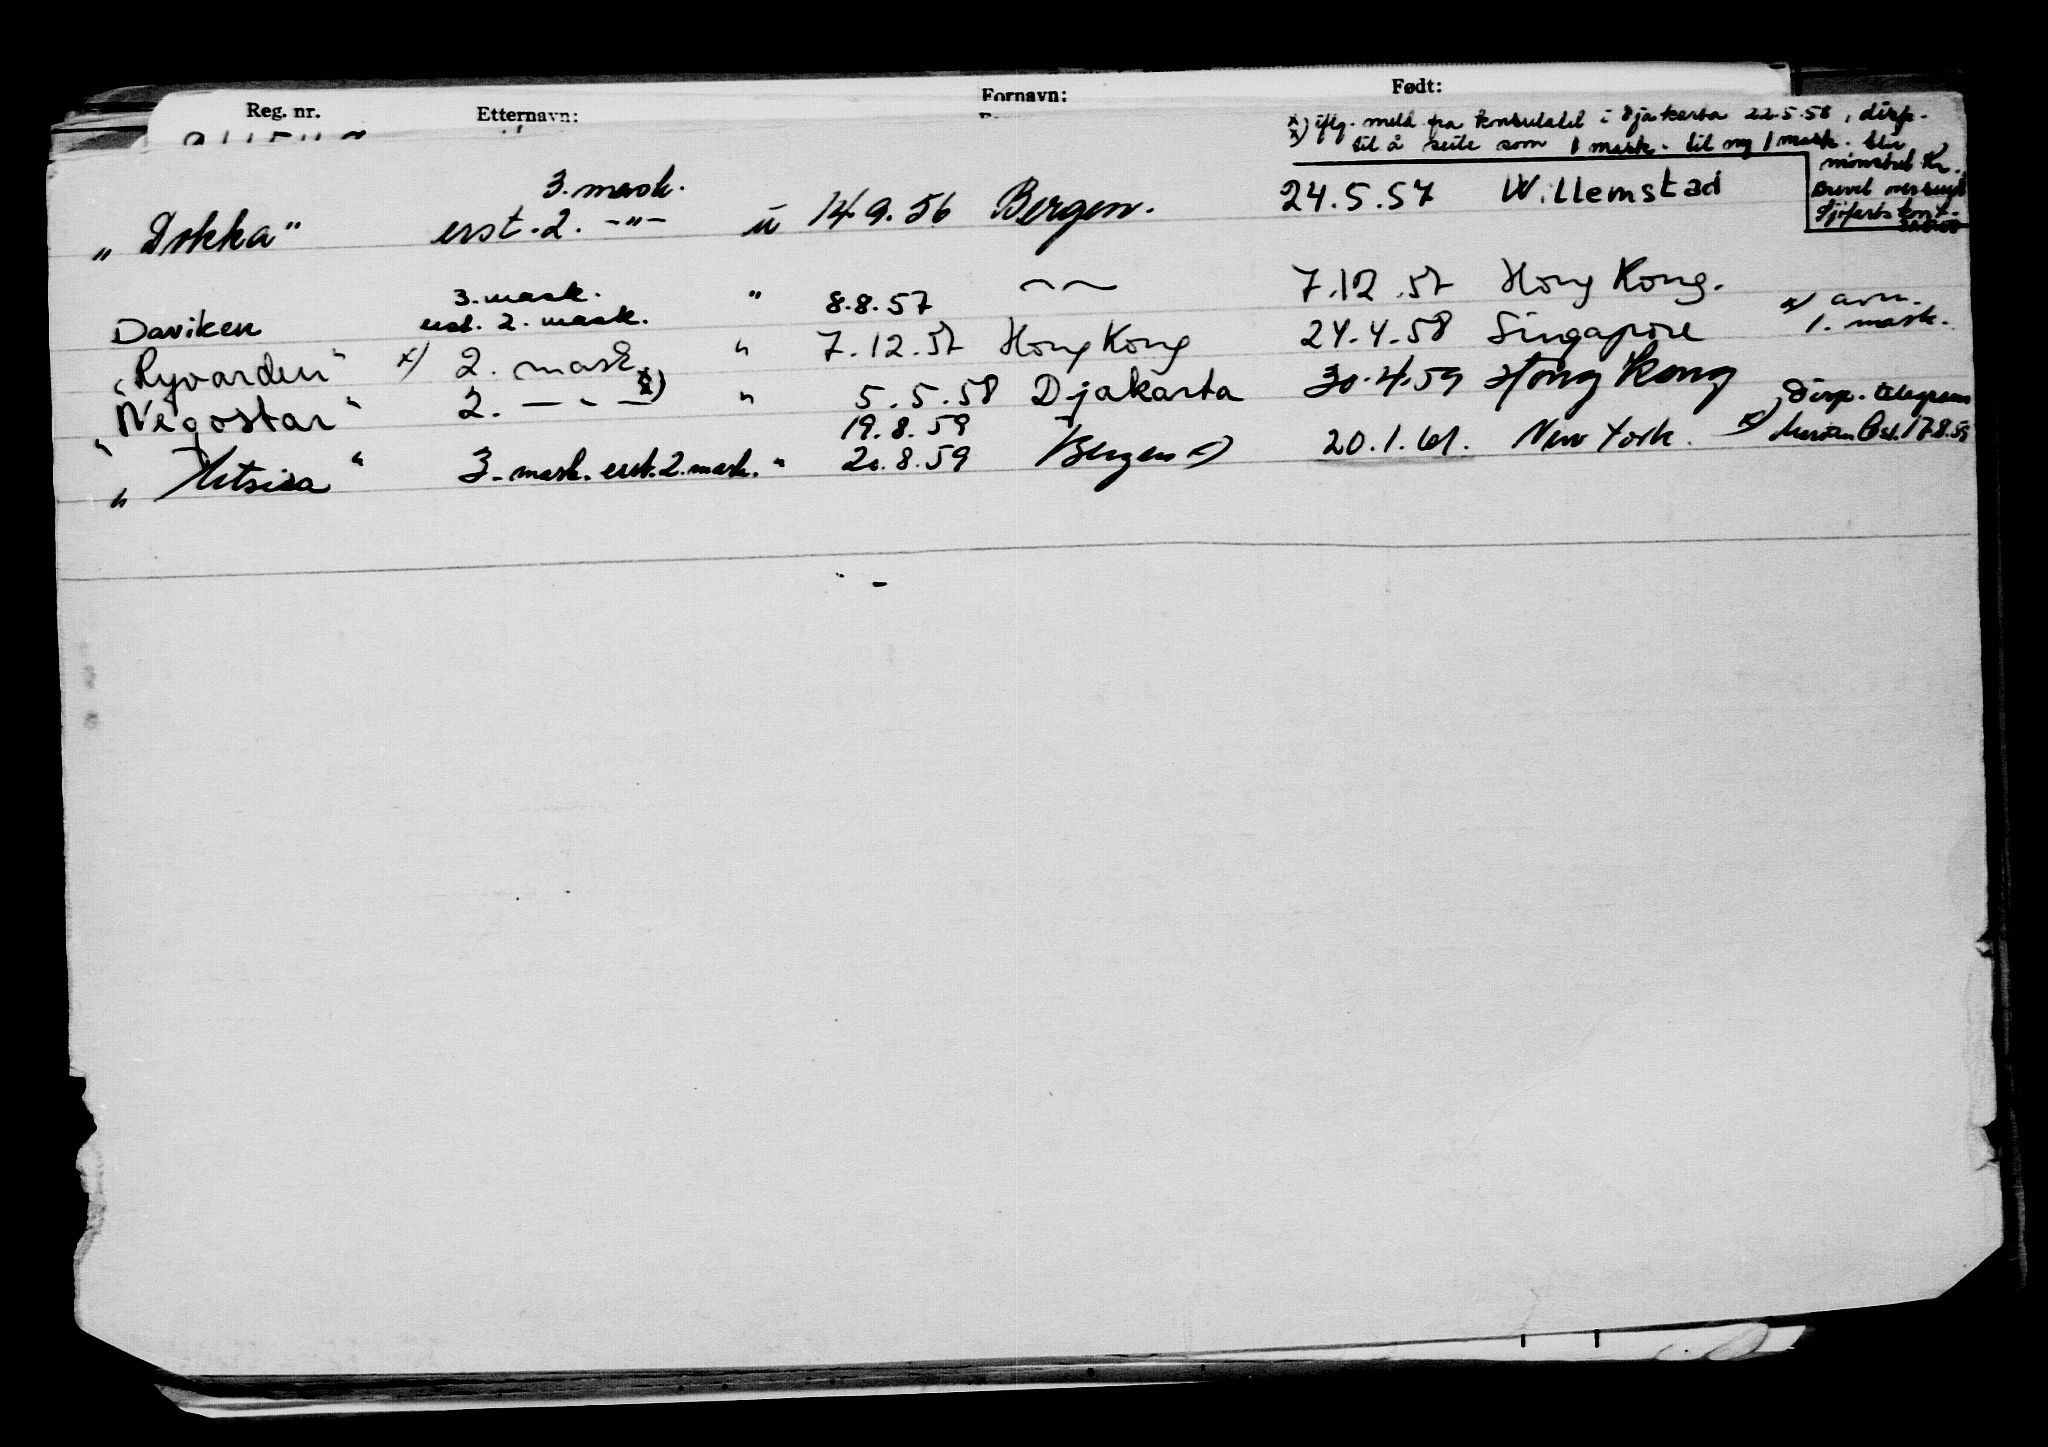 Reg. nr. Etternavn: Fornavn: Født:
x) iflg. meld. fra konsulatet i Djakarta 22.5.58, disp.
x) til å seile som 1 mask. til ny 1 mask. blir
mønstret
3. mask.
"Dokka" erst. 2. -"- u 14.9.56 Bergen. 24.5.57 Willemstad
3. mask.
Daviken erst. 2. mask. " 8.8.57 —"— 7.12.57 Hong Kong.
"Ryvarden" x) 2. mask. " 7.12.57 Hong Kong 24.4.58 Singapore x) avm. 1. mask.
"Negostar" 2. —"— x) " 5.5.58 Djakarta 30.4.59 Hong Kong
19.8.59
" " 3. mask. erst. 2. mask. " 20.8.59 Bergen x) 20.1.61. New York. x) Disp. telegram 17.8.59